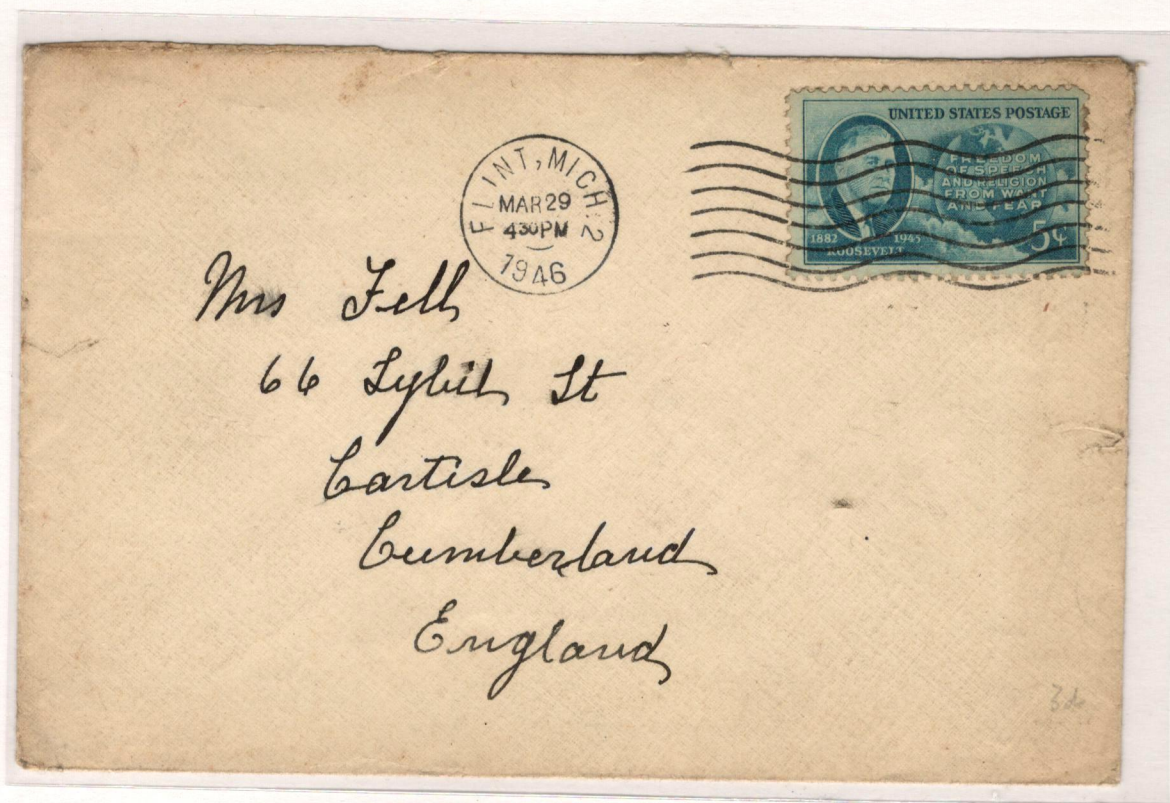 UNITED STATES POSTAGE
FREEDOM
OF SPEECH
AND RELIGION
FROM WANT
AND FEAR
1882 1945
ROOSEVELT
5¢
FLINT, MICH. 2
MAR 29
430 PM
1946
Mrs Fell
66 Sybil St
Carlisle
Cumberland
England